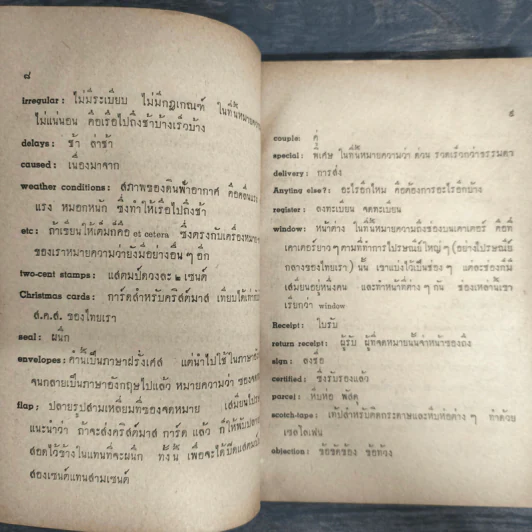 ๘
irregular : ไม่มีระเบียบ ไม่มีกฎเกณฑ์ ในที่นี้หมายความ
ไม่แน่นอน คือเรือไปถึงช้าบ้างเร็วบ้าง
delays : ช้า ล่าช้า
caused : เนื่องมาจาก
weather conditions : สภาพของดินฟ้าอากาศ คือคลื่นแรง
แรง หมอกหนัก ซึ่งทำให้เรือไปถึงช้า
etc : ถ้าเขียนให้เต็มก็คือ et cetera ซึ่งตรงกับเครื่องหมาย
ของเราหมายความว่ายังมีอย่างอื่น ๆ อีก
two-cent stamps : แสตมป์ดวงละ ๒ เซนต์
Christmas cards : การ์ดสำหรับคริสต์มาส เทียบได้เท่ากับ
ส.ค.ส. ของไทยเรา
seal : ผนึก
envelopes : คำนี้เป็นภาษาฝรั่งเศส แต่นำไปใช้ในภาษาอัง
จนกลายเป็นภาษาอังกฤษไปแล้ว หมายความว่า ซองจด
flap : ปลายรูปสามเหลี่ยมที่ซองจดหมาย เสมียนไปร
แนะนำว่า ถ้าจะส่งคริสต์มาส การ์ด แล้ว ก็ให้พับปลาย
สอดไว้ข้างในแทนที่จะผนึก ทั้งนี้ เพื่อจะได้ปิดแสตมป์
สองเซนต์แทนสามเซนต์
๙
couple : คู่
special : พิเศษ ในที่นี้หมายความว่า ด่วน รวดเร็วกว่าธรรมดา
delivery : การส่ง
Anyting else? : อะไรอีกไหม คือต้องการอะไรอีกบ้าง
register : ลงทะเบียน จดทะเบียน
window : หน้าต่าง ในที่นี้หมายความถึงช่องบนเคาเตอร์ คือที่
เคาเตอร์ยาว ๆ ตามที่ทำการไปรษณีย์ใหญ่ ๆ (อย่างไปรษณีย์
กลางของไทยเรา) นั้น เขาแบ่งไว้เป็นช่อง ๆ แต่ละช่องก็มี
เสมียนอยู่หนึ่งคน และทำหน้าที่ต่าง ๆ กัน ช่องเหล่านี้เขา
เรียกว่า window
Receipt : ใบรับ
return receipt : ผู้รับ ผู้ที่จดหมายนั้นจ่าหน้าซองถึง
sign : ลงชื่อ
certified : ซึ่งรับรองแล้ว
parcel : หีบห่อ พัสดุ
scotch-tape : เทปสำหรับติดกระดาษและหีบห่อต่าง ๆ ทำด้วย
เซลโลเฟน
objection : ข้อขัดข้อง ข้อท้วง